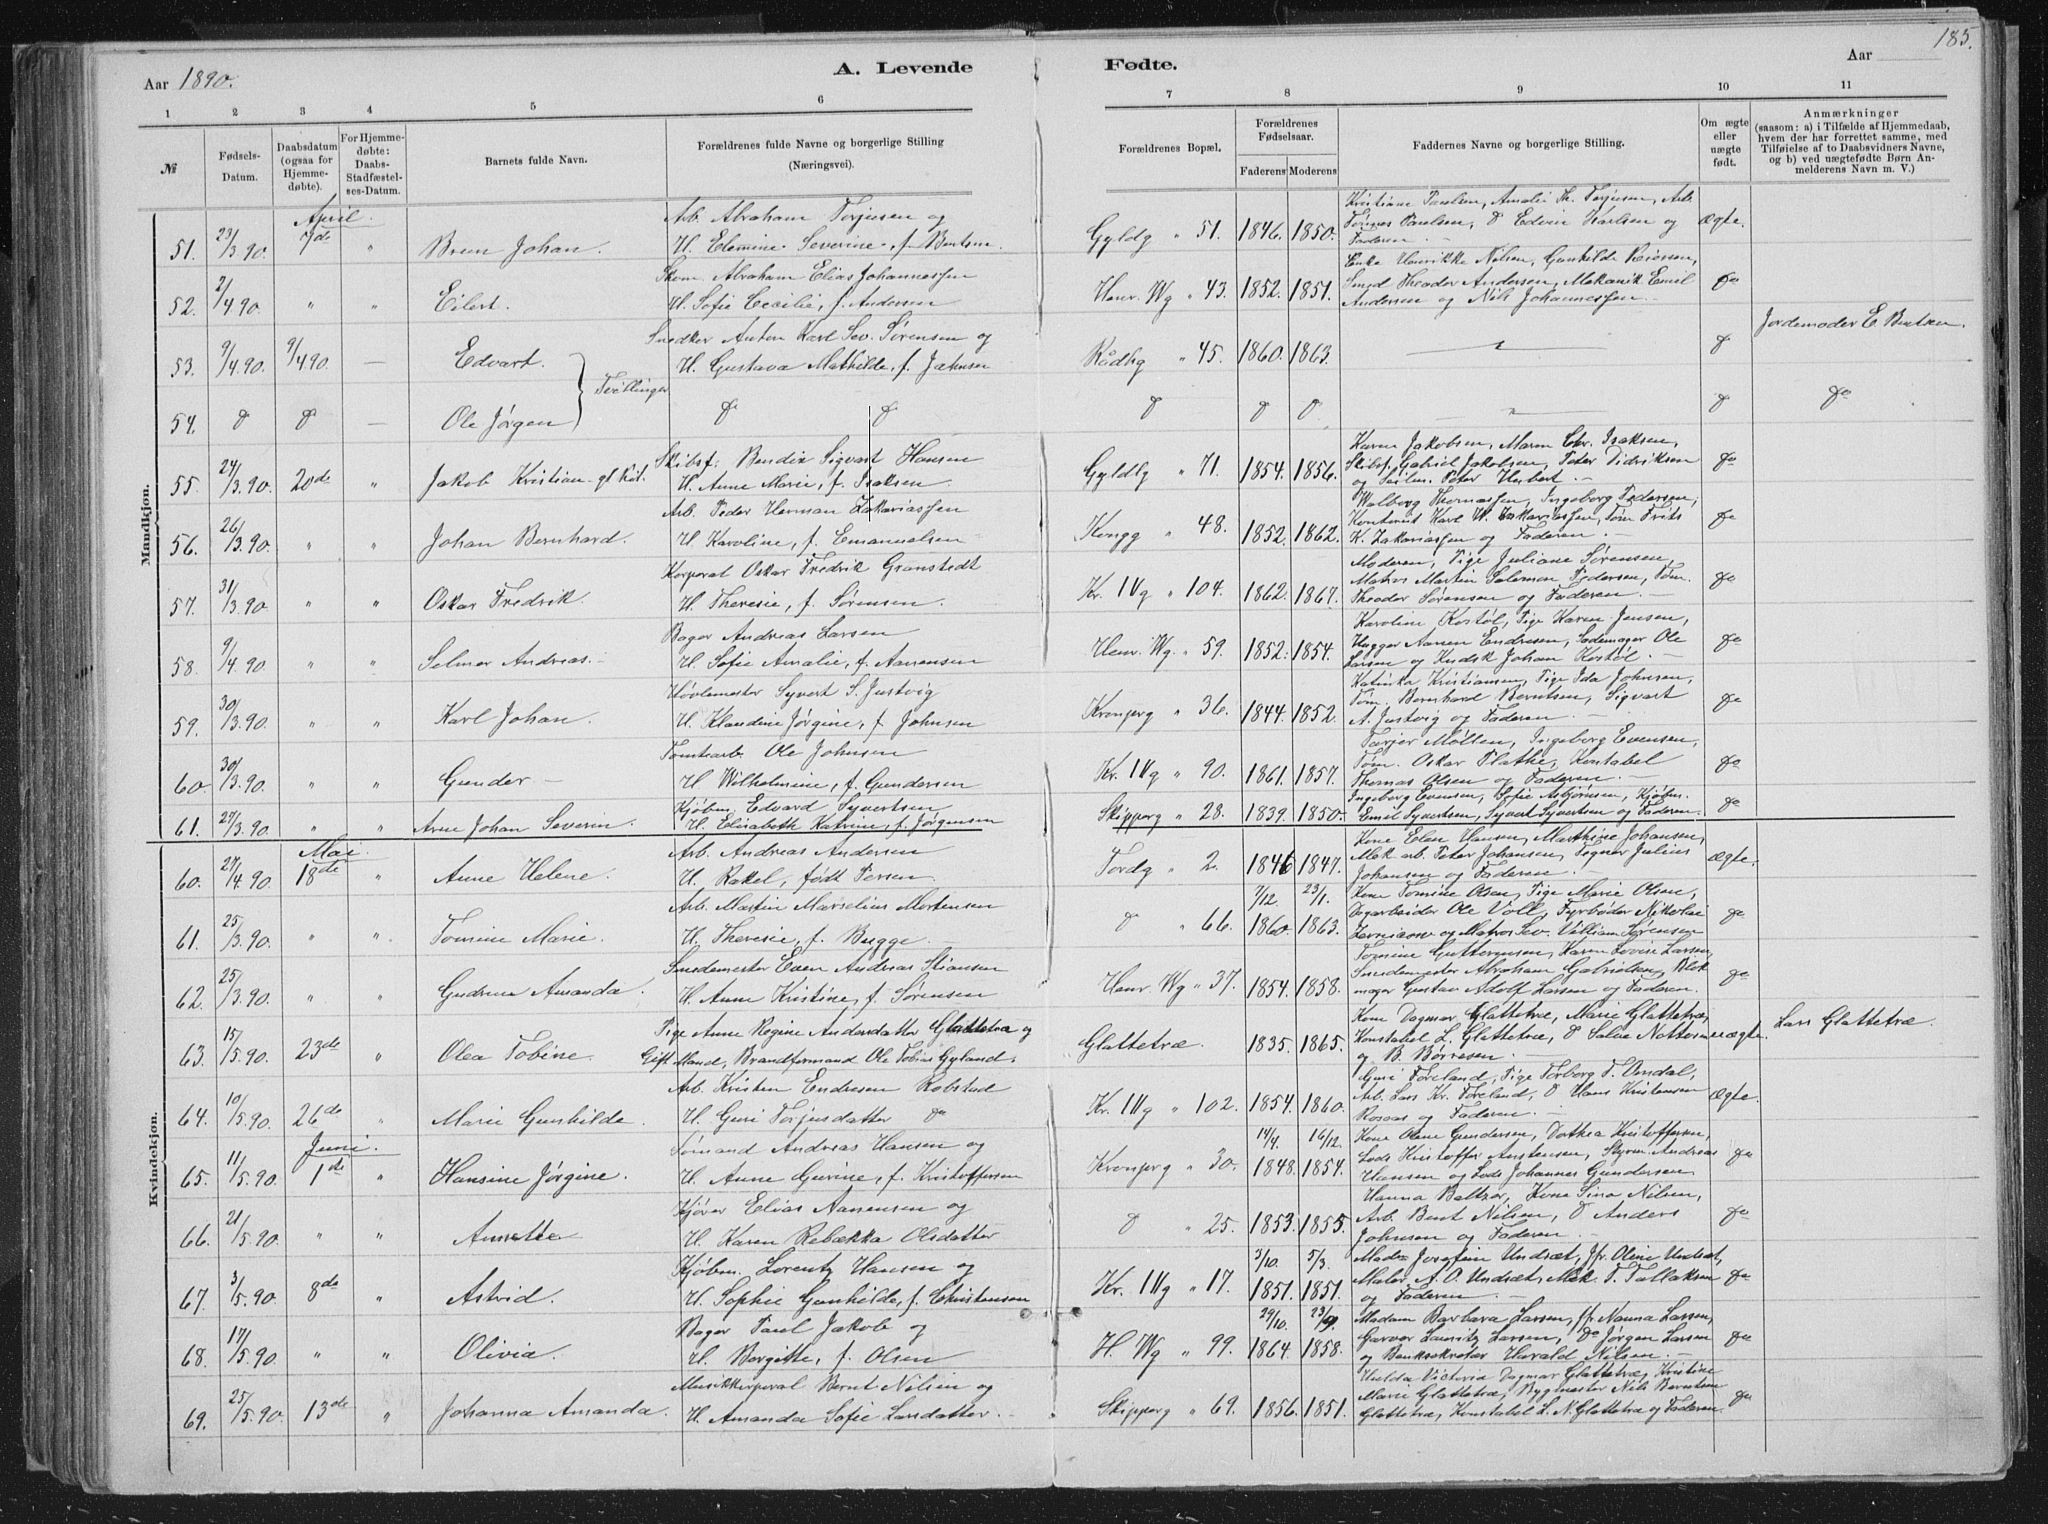 185.
Aar 1890.
A. Levende
Fødte.
Aar
1 2 3 4 5 6 7 8 9 10 11
№
Fødsels-
Datum.
Daabsdatum
(ogsaa for
Hjemme-
døbte).
For Hjemme-
døbte:
Daabs-
Stadfæstel-
ses-Datum.
Barnets fulde Navn.
Forældrenes fulde Navne og borgerlige Stilling
(Næringsvei).
Forældrenes Bopæl.
Forældrenes
Fødselsaar.
Faderens Moderens
Faddernes Navne og borgerlige Stilling.
Om ægte
eller
uægte
født.
Anmærkninger
(saasom: a) i Tilfælde af Hjemmedaab,
hvem der har forrettet samme, med
Tilføielse af to Daabsvidners Navne,
og b) ved uægtefødte Børn An-
melderens Navn m. V.)
Mandkjøn.
April.
51. 23/3.90. 7de " Brun Johan. Arb. Abraham Torjusen og
H. Elemine Severine, f. Bentsen Gyldg " 51. 1846. 1850.
Kristiane Paulsen, Amalie Th. Torjusen, Arb.
Tønnes Paulsen, d Edvin Karlsen og
Faderen. — Ægte.
52. 2/4.90. " " Eilert. Skom. Abraham Elias Johannessen
H. Sofie Cecilie, f. Andersen Henr. Wg " 43. 1852. 1851.
Enke Henrikke Nilsen, Gunhilde Reiersen,
Smed Theodor Andersen, Mekanik Emil
Andersen og Nils Johannessen. — do
53. 9/4.90. 9/4.90. — Edvart. Snedker Anton Karl Sev. Sørensen og
H. Gustava Mathilde, f. Jahnsen Rådhg " 45. 1860. 1863. — " — d Jordemoder E. Bentsen.
Tvillinger
54. d d — Ole Jørgen do do d d d — " — d do
55. 24/3.90. 20de " Jakob Kristian Skibsf. Bendix Sigvart Hansen
H. Anne Marie, f. Isaksen. Gyldlg " 71. 1854. 1856.
Karen Jakobsen, Maren Chr. Isaksen,
Skibsf. Gabriel Jakobsen, Peter Didriksen
og Seilm. Peter Herbert. — do
56. 26/3.90. " " Johan Bernhard. Arb. Peder Herman Zakariassen
H. Karoline, f. Emanuelsen Kongg " 48. 1852. 1862.
Walborg Thomassen, Ingeborg Pedersen,
Kontorist Karl W. Zakariassen, Tøm. Frits
K. Zakariassen og Faderen. — do
57. 31/3.90. " " Oskar Fredrik. Korporal Oskar Fredrik Granstedt
H. Theresie, f. Sørensen. Kr. IVg " 104. 1862. 1867.
Moderen, Pige Juliane Sørensen,
Matros Martin Salomon Pedersen, Tøm.
Theodor Sørensen og Faderen. — do
58. 9/4.90. " " Selmer Andreas. — Bager Andreas Larsen
H. Sofie Amalie, f. Aanensen Henr. Wg " 59. 1852. 1854.
Karoline Kostøl, Pige Karen Jensen,
Hugger Aanen Endresen, Sadelmager Ole
Larsen og Kudsk Johan Kostøl. — do
59. 30/3.90. " " Karl Johan. Høvlemester Syvert S. Justvig
H. Klaudine Jørgine, f. Johnsen Kronprg " 36. 1844. 1852.
Katinka Kristiansen, Pige Ida Johnsen,
Tøm. Bernhard Berntsen, Sigvart
A. Justvig og Faderen. — do
60. 30/3.90. " " Gunder — Tomtearb. Ole Johnsen
H. Wilhelmine, f. Gundersen Kr. IVg " 90. 1861. 1857.
Torjer Mølten, Ingeborg Evensen,
Tøm. Oskar Plathe, Konstabel
Thomas Olsen og Faderen. — do
61. 27/3.90. " " Arne Johan Severin. Kjøbm. Edvard Syvertsen
H. Elisabeth Katrine, f. Jørgensen Skipperg " 28. 1839. 1850.
Ingeborg Evensen, Sofie Asbjørnsen, Kjøbm.
Emil Syvertsen, Syvert Syvertsen og Faderen. do
Kvindekjøn.
Mai.
60. 27/4.90. 18de " Anne Helene. Arb. Andreas Andersen
H. Rakel, født Persen. Tordg " 2. 1846 1847.
Kone Elen Hansen, Marthine Johansen,
Mek. arb. Peter Johansen, Tegner Julius
Johansen og Faderen. — Ægte.
61. 25/3.90. " " Tomine Marie. Arb. Martin Marselius Mortensen
H. Theresie, f. Bugge. d " 66. 7/12. 1860. 23/1. 1863.
Kone Tomine Olsen, Pige Marie Olsen,
Dagarbeider Ole Voll, Fyrbøder Nikolai
og Matros Sev. Villiam Sørensen do
62. 25/3.90. " " Gudrun Amanda. Smedemester Even Andreas Stiansen
H. Anne Kristine, f. Sørensen Henr. Wg " 37. 1854. 1858.
Tomine Guttormsen, Karen Lovise Larsen,
Smedemester Abraham Gabrielsen, Blok-
mager Gustav Adolf Larsen og Faderen. do
63. 15/5.90. 23de " Olea Tobine. Pige Anne Regine Andersdatter Glattetræ og
Gift Mand, Brandformand Ole Tobias Gyland. Glattetræ. 1835. 1865.
Kone Dagmar Glattetræ, Marie Glattetræ,
Konstabel L. Glattetræ, d Salve Nottersen
og B. Børresen. Uægte. Lars Glattetræ.
64. 10/5.90. 26de " Marie Gunhilde. Arb. Kristen Endresen Robstad
H. Guri Torjusdatter do Kr. IVg " 102. 1854. 1860.
Guri Foreland, Pige Torborg T. Omdal,
Arb. Lars Kr. Foreland, d Hans Kristensen
Rosaas og Faderen. — Ægte.
Juni.
65. 11/5.90. 1de " Hansine Jørgine. Sømand Andreas Hansen og
H. Anne Gurine, f. Kristoffersen Kronprg " 30. 14/4. 1848. 16/12. 1854.
Kone Olene Gundersen, Dorthea Kristoffersen,
Lods Kristoffer Anstensen, Styrm. Andreas
Hansen og Lods Johannes Gundersen. do
66. 21/5.90. " " Annette Kjører Elias Aanensen og
H. Karen Rebækka Olsdatter d " 25. 1853. 1855.
Hanna Baltzer, Kone Sina Nilsen,
Arb. Bent Nilsen, d Anders
Johnsen og Faderen. — do
67. 3/5.90. 8de " Astrid. Kjøbm. Lorentz Hansen og
H. Sophie Gunhilde, f. Christensen Kr. IVg " 17. 3/10. 1851. 5/3. 1851.
Madm Josefine Undsæt, jfr. Oline Undsæt,
Maler A. O. Undsæt, Mek. T. Tallaksen
og Faderen. — do
68. 17/5.90. " " Olivia. Bager Paul Jakob og
H. Bergitte, f. Olsen H. Wg " 99. 29/10. 1864. 23/9. 1858.
Madam Barbara Larsen, jfr. Nanna Larsen,
Garver Lauritz Larsen, do Jørgen Larsen
og Banksekretær Harald Nilsen. — do
69. 25/5.90. 13de " Johanna Amanda. Musikkorporal Bernt Nilsen og
H. Amanda Sofie Larsdatter. Skipperg " 69. 1856. 1851.
Hulda Victoria Dagmar Glattetræ, Kristine
Marie Glattetræ, Bygmester Nils Berntsen
Glattetræ, Konstabel L. N. Glattetræ og Faderen. do